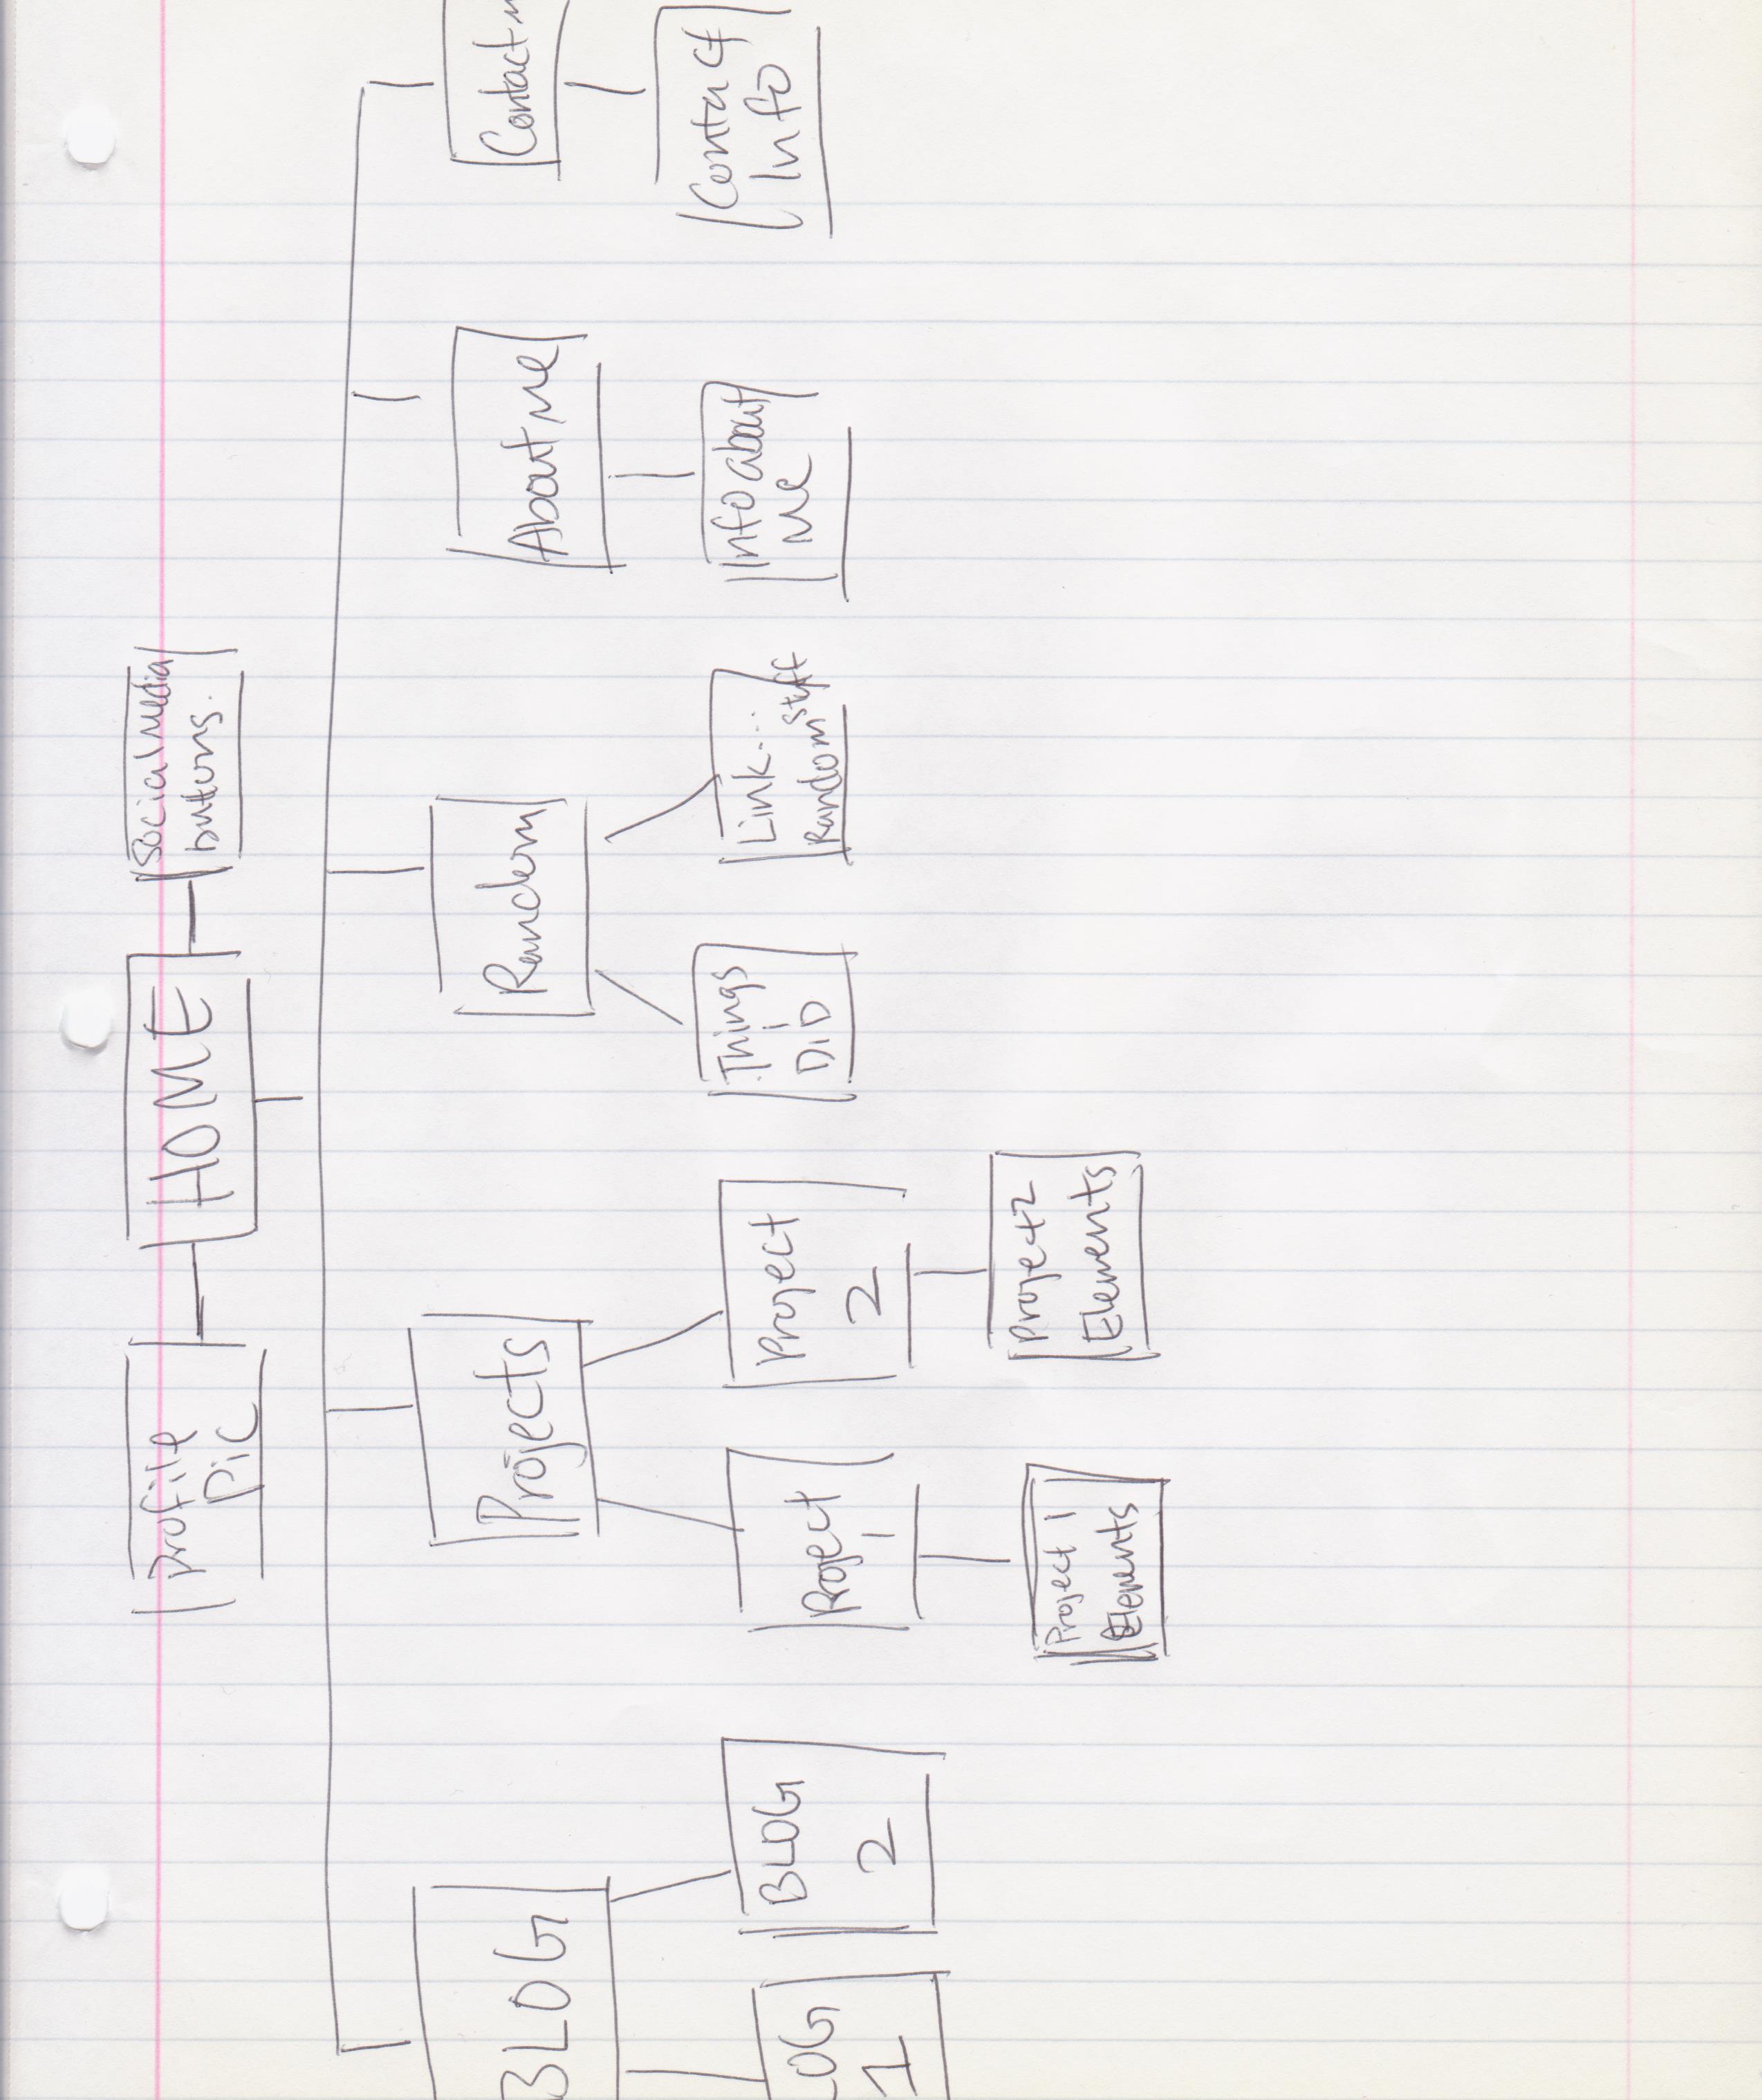 Profile
Pic
HOME
Social media
buttons.
BLOG
Projects
Random
About me
Contact m
LOG
1
BLOG
2
Project
1
Project
2
Things
i
DiD
Link...
Random stuff
Info about
Me
Contact
Info
Project 1
Elements
Project 2
Elements